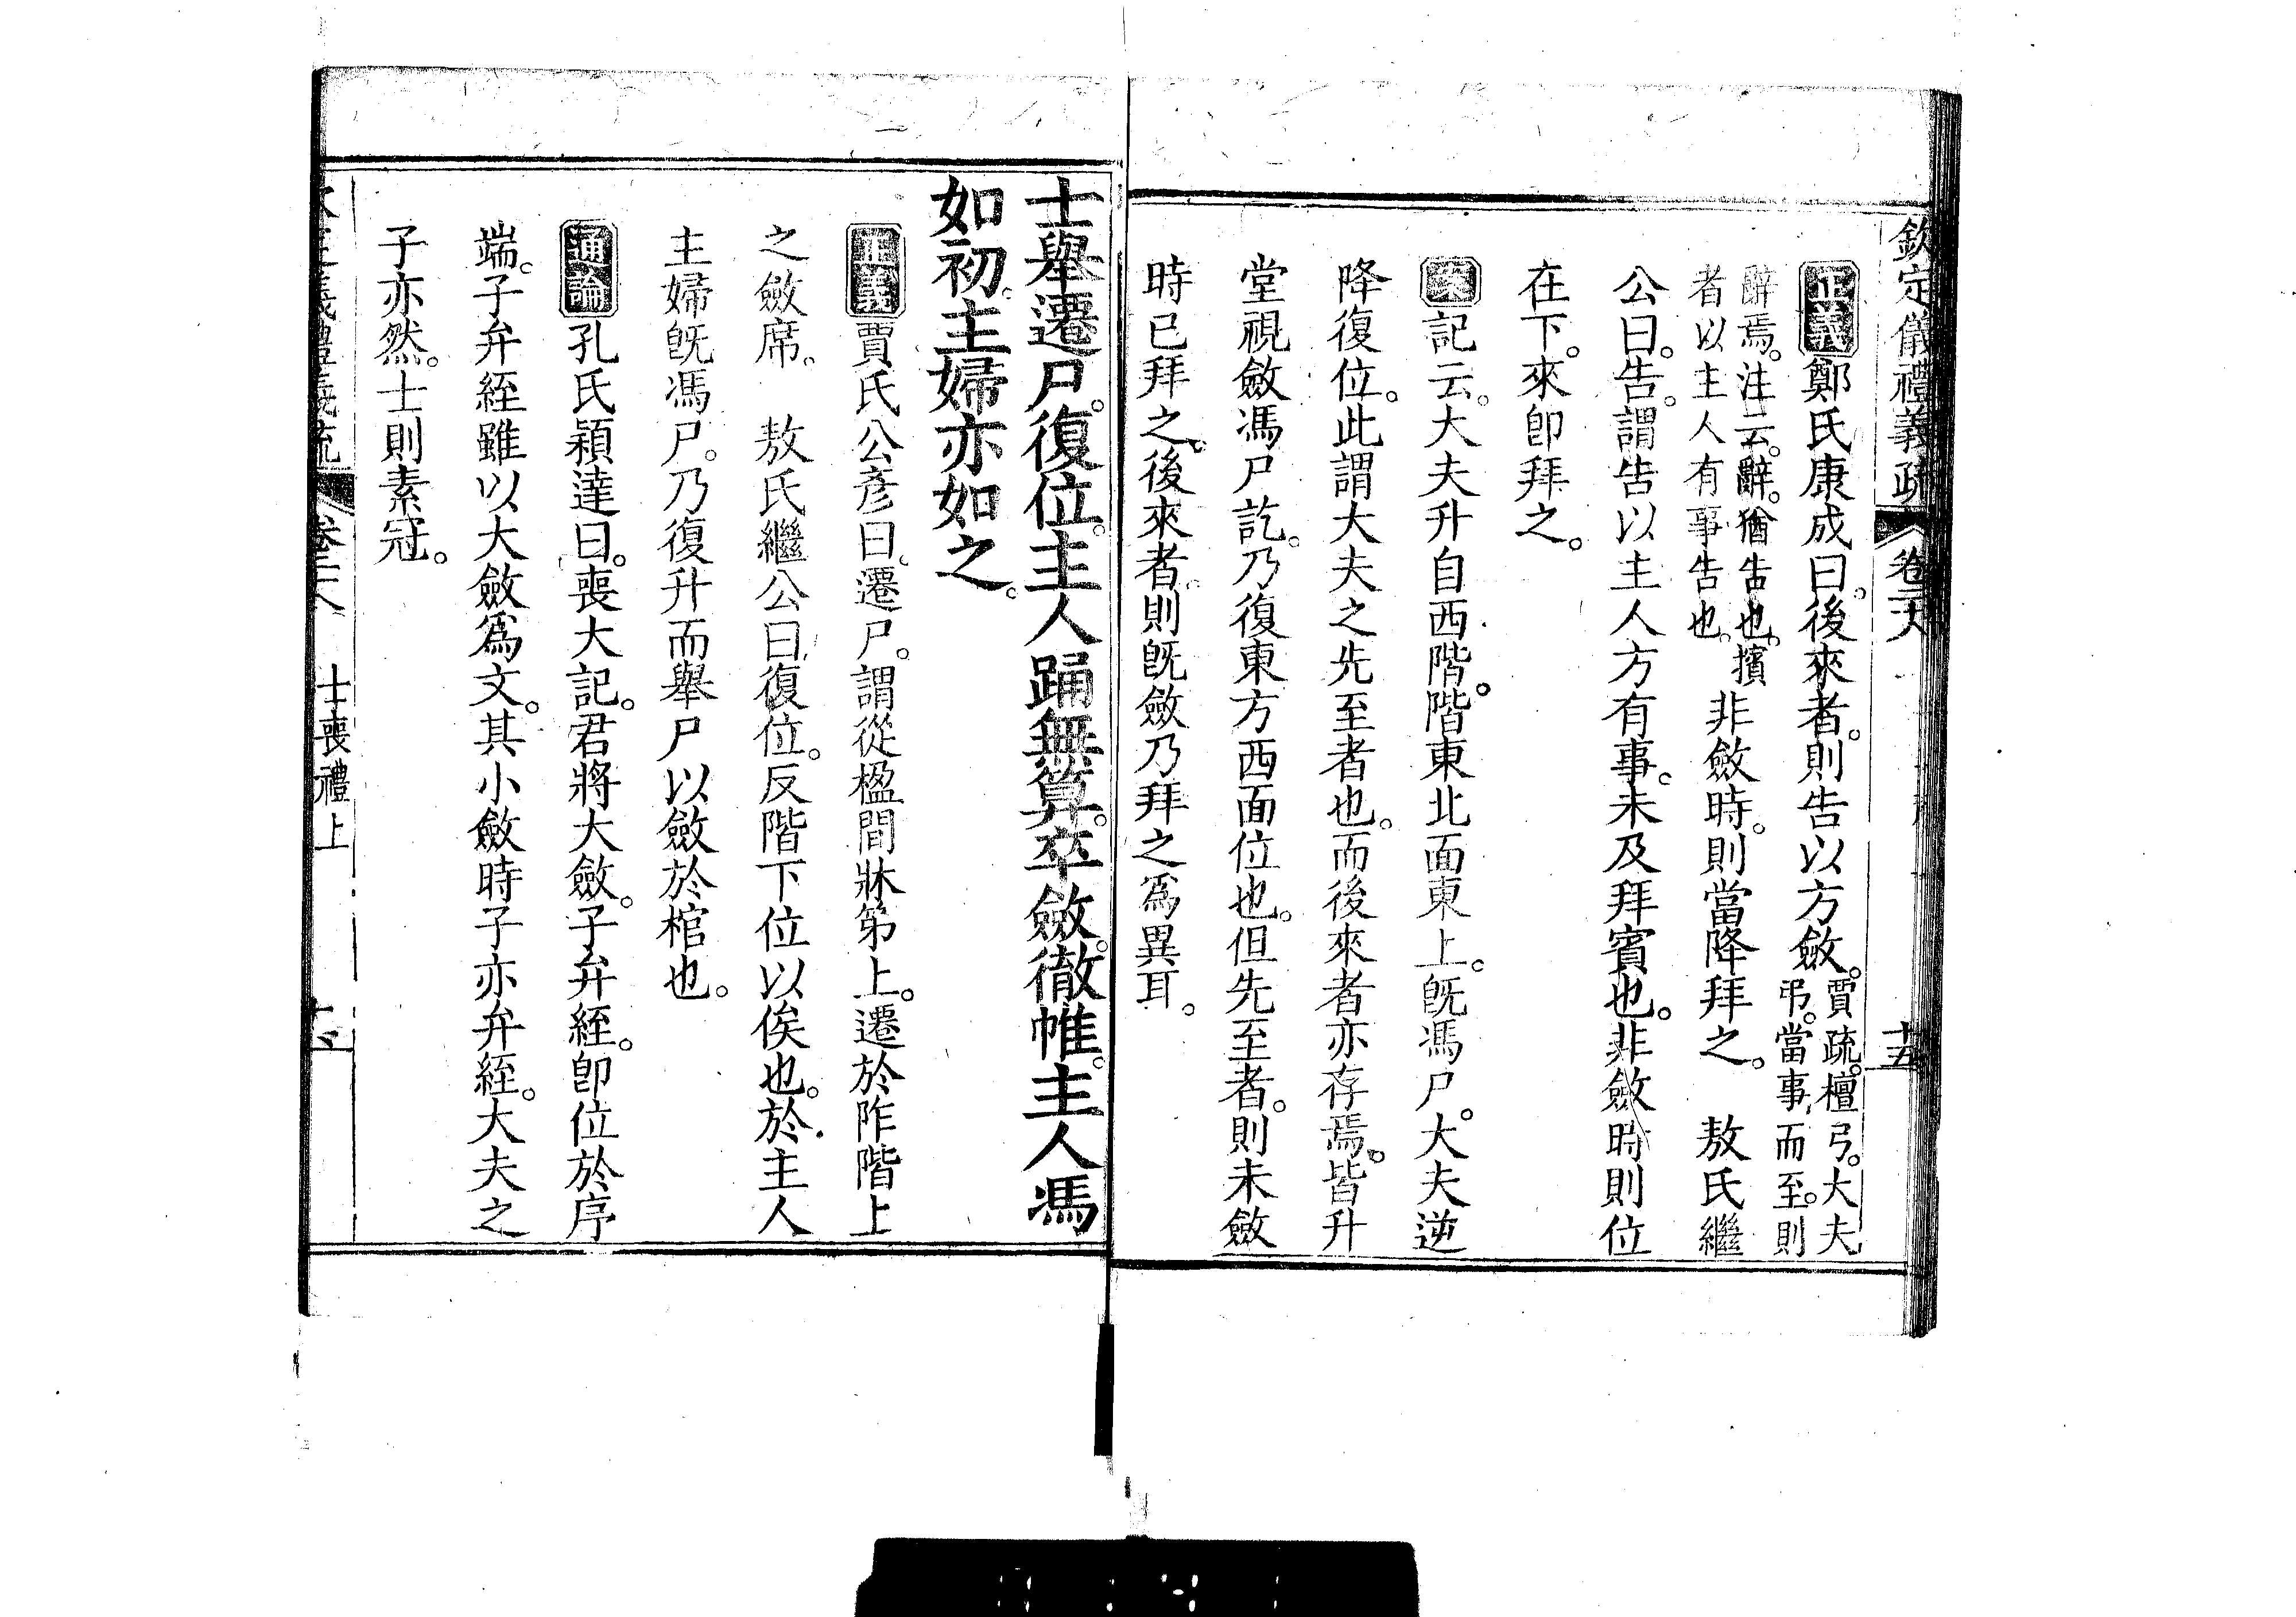 欽定儀禮義疏 卷二十八 十五
正義鄭氏康成曰。後來者。則告以方斂。賈疏。檀弓。大夫
弔。當事而至。則
辭焉。注云。辭。猶告也。擯
者以主人有事告也。非斂時。則當降拜之。 敖氏繼
公曰。告。謂告以主人方有事。未及拜賓也。非斂時則位
在下。來卽拜之。
案記云。大夫升自西階。階東北面東上。旣馮尸。大夫逆
降復位。此謂大夫之先至者也。而後來者亦存焉。皆升
堂視斂馮尸訖。乃復東方西面位也。但先至者。則未斂
時已拜之。後來者。則旣斂乃拜之爲異耳。
士舉遷尸。復位。主人踊無算。卒斂。徹帷。主人馮
如初。主婦亦如之。
正義賈氏公彥曰。遷尸。謂從楹間牀第上。遷於阼階上
之斂席。 敖氏繼公曰。復位。反階下位以俟也。於主人
主婦旣馮尸。乃復升而舉尸以斂於棺也。
通論孔氏穎達曰。喪大記。君將大斂。子弁絰。卽位於序
端。子弁絰雖以大斂爲文。其小斂時子亦弁絰。大夫之
子亦然。士則素冠。
義禮義疏 卷二十八 士喪禮上